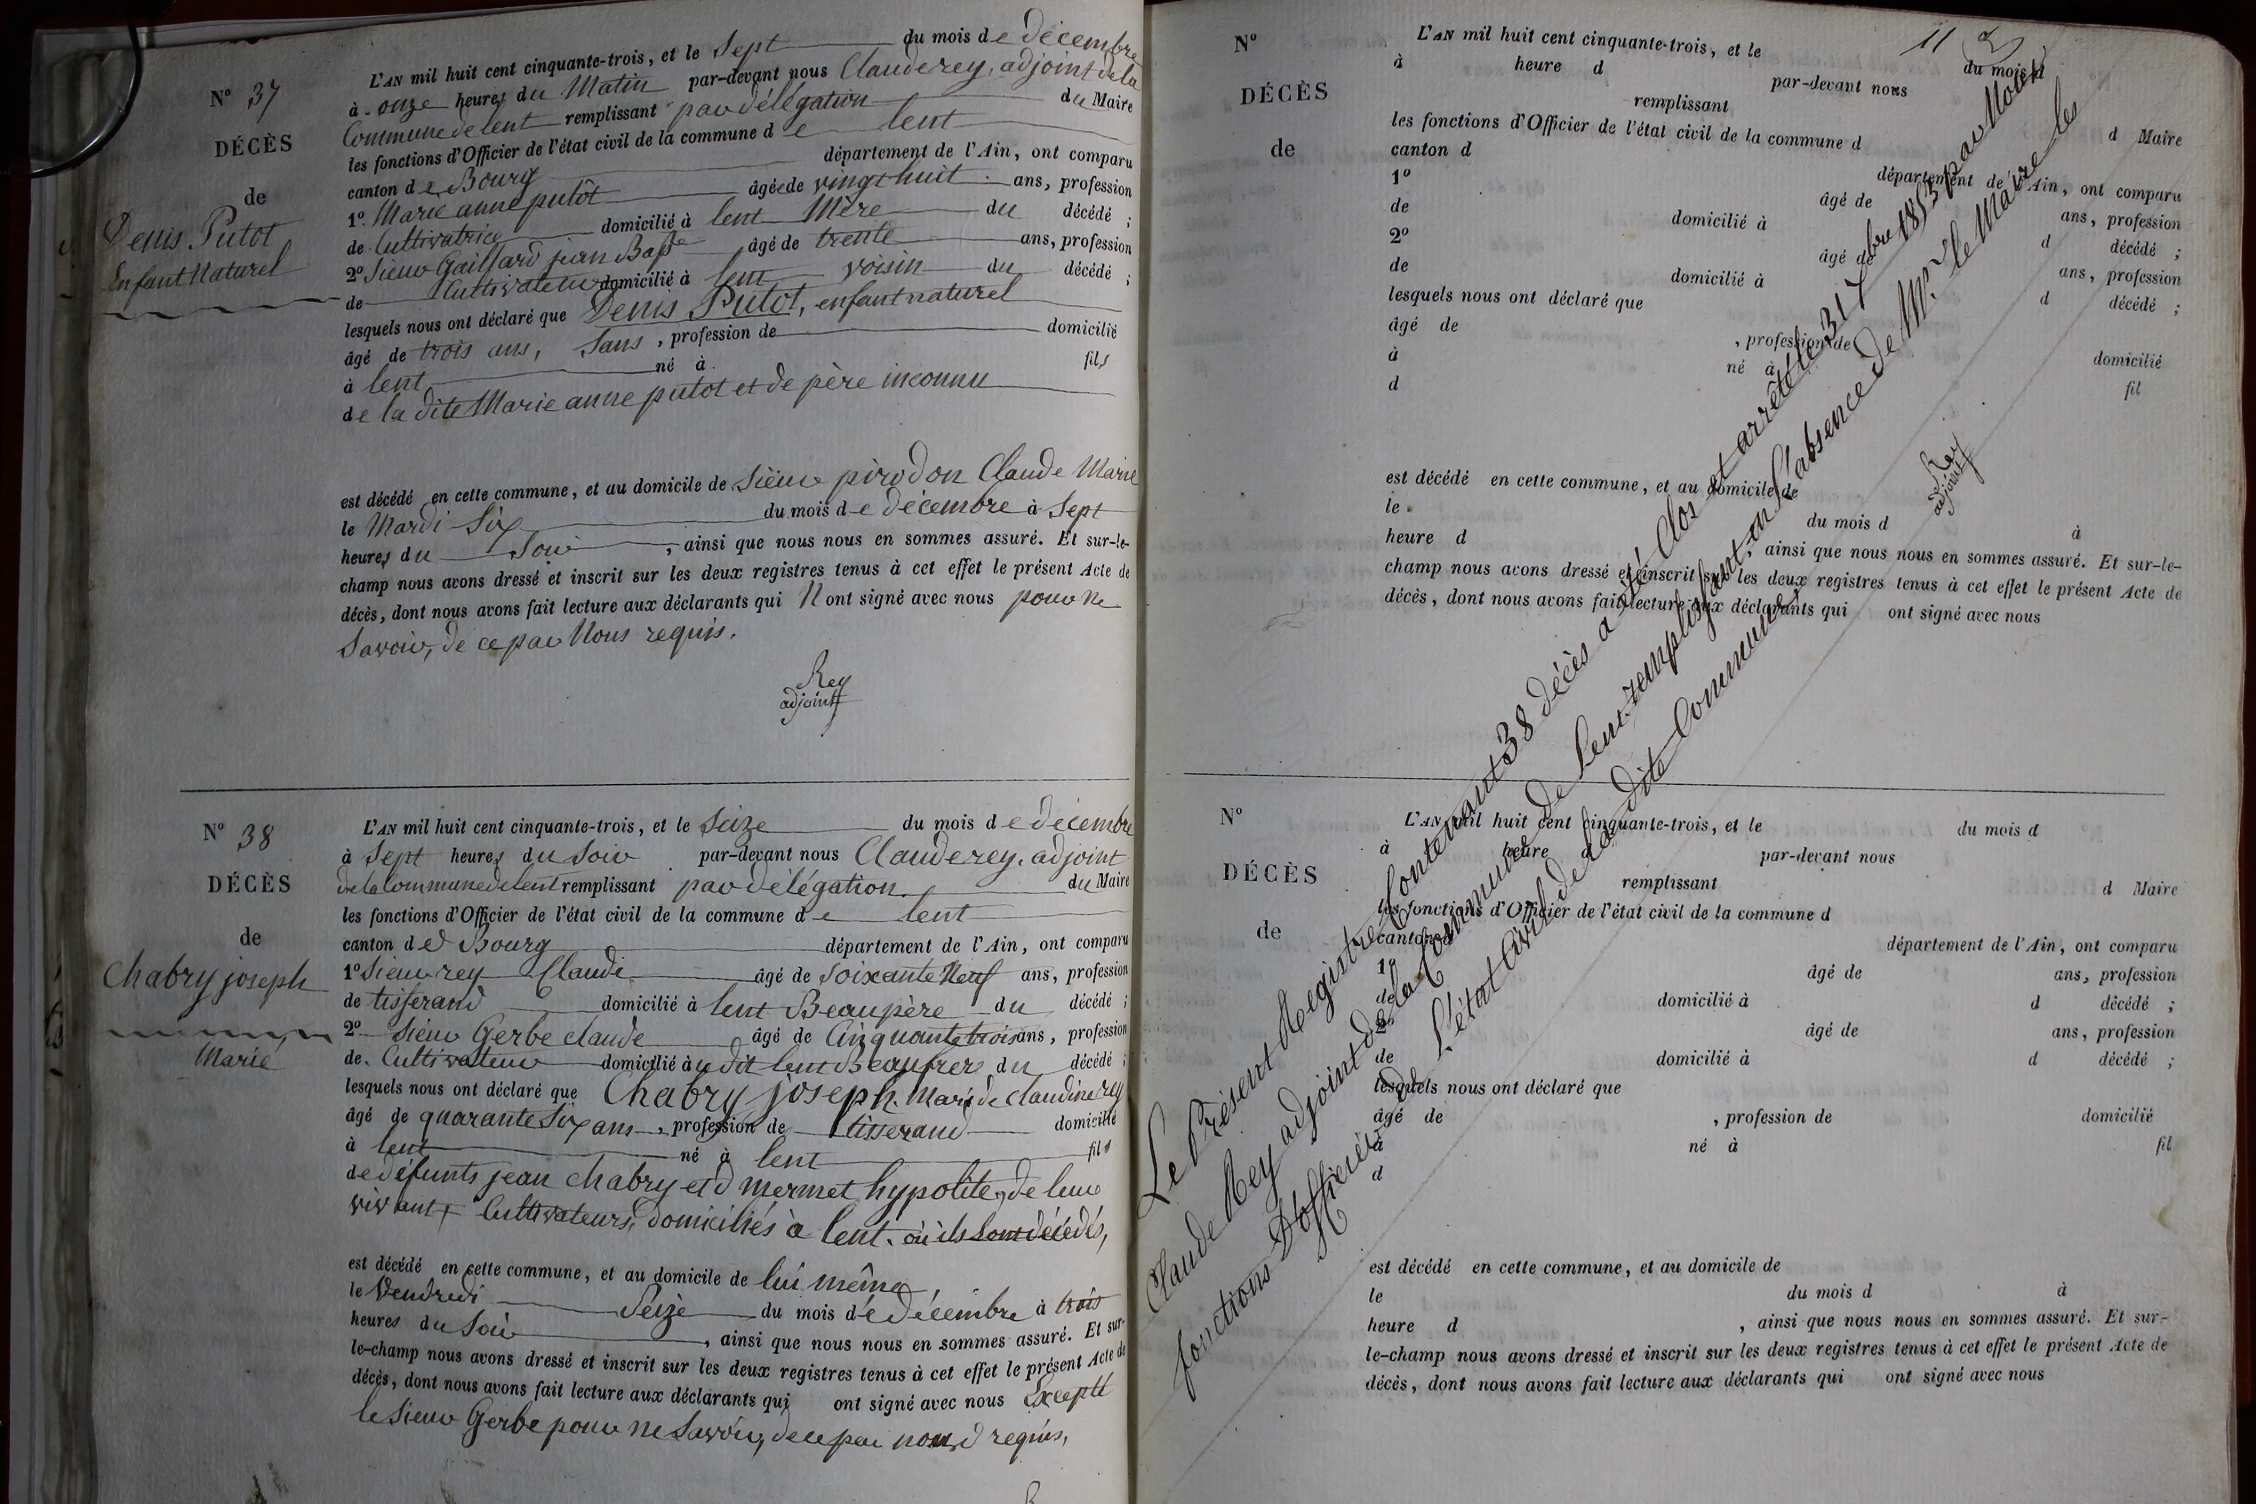 N° 37
DÉCÈS
de
Denis Putot
Enfant Naturel
L'AN mil huit cent cinquante-trois, et le Sept du mois de décembre
à onze heures du Matin par-devant nous Claude rey, adjoint de la
Commune de lent remplissant par délégation du Maire
les fonctions d'Officier de l'état civil de la commune de lent
canton de Bourg département de l'Ain, ont comparu
1° Marie anne putôt âgée de vingt huit ans, profession
de Cultivatrice domicilié à lent Mère du décédé ;
2° Sieur Gaillard jean Bapte âgé de trente ans, profession
de Cultivateur domicilié à lent voisin du décédé ;
lesquels nous ont déclaré que Denis Putot, enfant naturel
âgé de trois ans, Sans , profession de domicilié
à lent né à fils
de la dite Marie anne putot et de père inconnu
est décédé en cette commune, et au domicile de Sieur pirodon Claude Marie
le Mardi Six du mois de décembre à Sept
heures du Soir , ainsi que nous nous en sommes assuré. Et sur-le-
champ nous avons dressé et inscrit sur les deux registres tenus à cet effet le présent Acte de
décès, dont nous avons fait lecture aux déclarants qui N ont signé avec nous pour ne
Savoir, de ce par Nous requis.
Rey
adjoint
N° 38
DÉCÈS
de
Chabry joseph
Marié
L'AN mil huit cent cinquante-trois, et le Seize du mois de décembre
à Sept heures du Soir par-devant nous Claude rey, adjoint
de la Commune de lent remplissant par délégation du Maire
les fonctions d'Officier de l'état civil de la commune de lent
canton de Bourg département de l'Ain, ont comparu
1° Sieur rey Claude âgé de Soixante Neuf ans, profession
de tisserand domicilié à lent Beaupère du décédé ;
2° Sieur Gerbe claude âgé de Cinquante trois ans, profession
de Cultivateur domicilié à u dit lent Beaufrere du décédé ;
lesquels nous ont déclaré que Chabry joseph. Mari de claudine rey
âgé de quarante Six ans , profession de tisserand domicilié
à lent né à lent fils
de défunts jean chabry et d mermet hypolite, de leur
vivant, Cultivateurs, domiciliés à lent. où ils Sont décédés,
est décédé en cette commune, et au domicile de lui même
le Vendredi Seize du mois de décembre à trois
heures du Soir , ainsi que nous nous en sommes assuré. Et sur-
le-champ nous avons dressé et inscrit sur les deux registres tenus à cet effet le présent Acte de
décès, dont nous avons fait lecture aux déclarants qui ont signé avec nous Excepté
le Sieur Gerbe pour ne Savoir, de ce par nous requis,
11
N°
DÉCÈS
de
L'AN mil huit cent cinquante-trois, et le du mois d
à heure d par-devant nous
remplissant d Maire
les fonctions d'Officier de l'état civil de la commune d
canton d département de l'Ain, ont comparu
1° âgé de ans, profession
de domicilié à d décédé ;
2° âgé de ans, profession
de domicilié à d décédé ;
lesquels nous ont déclaré que
âgé de , profession de domicilié
à né à fil
d
est décédé en cette commune, et au domicile de
le du mois d à
heure d , ainsi que nous nous en sommes assuré. Et sur-le-
champ nous avons dressé et inscrit sur les deux registres tenus à cet effet le présent Acte de
décès, dont nous avons fait lecture aux déclarants qui ont signé avec nous
Le Présent Registre Contenant 38 décès a été Clos et arrêté le 31 Xbre 1853 par Nous
Claude Rey adjoint de la Commune de Lent remplissant, en l'absence de Mr. le Maire les
fonctions D'officier de l'état Civil de la dite Commune
Rey
adjoint
N°
DÉCÈS
de
L'AN mil huit cent cinquante-trois, et le du mois d
à heure d par-devant nous
remplissant d Maire
les fonctions d'Officier de l'état civil de la commune d
canton d département de l'Ain, ont comparu
1° âgé de ans, profession
de domicilié à d décédé ;
2° âgé de ans, profession
de domicilié à d décédé ;
lesquels nous ont déclaré que
âgé de , profession de domicilié
à né à fil
d
est décédé en cette commune, et au domicile de
le du mois d à
heure d , ainsi que nous nous en sommes assuré. Et sur-
le-champ nous avons dressé et inscrit sur les deux registres tenus à cet effet le présent Acte de
décès, dont nous avons fait lecture aux déclarants qui ont signé avec nous